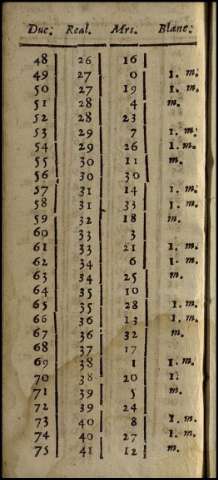 Duc: Real. Mrs. Blanc:
48 26 16
49 27 0 1. m.
50 27 19 1. m.
51 28 4 m.
52 28 23
53 29 7 1. m:
54 29 26 1. m.
55 30 11 m.
56 30 30
57 31 14 1. m.
58 31 33 1. m.
59 32 18 m.
60 33 3
61 33 21 1. m.
62 34 6 1. m.
63 34 25 m.
64 35 10
65 35 28 1. m.
66 36 13 1. m.
67 36 32 m.
68 37 17
69 38 1 1. m.
70 38 20
71 39 5 m.
72 39 24
73 40 8 1. m.
74 40 27 1. m.
75 41 12 m.